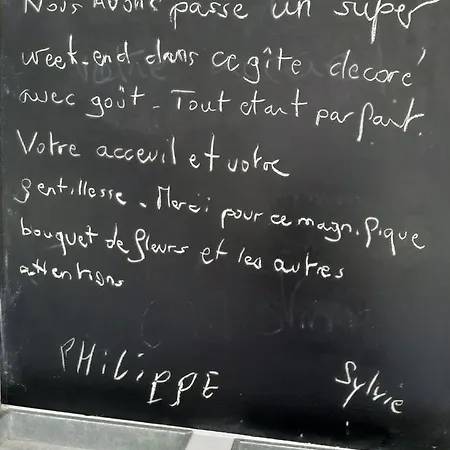 Nous avons passe un super
week-end dans ce gîte decoré
avec goût - Tout etant parfait.
Votre acceuil et votre
gentillesse. Merci pour ce magnifique
bouquet de fleurs et les autres
attentions
PHILIPPE Sylvie